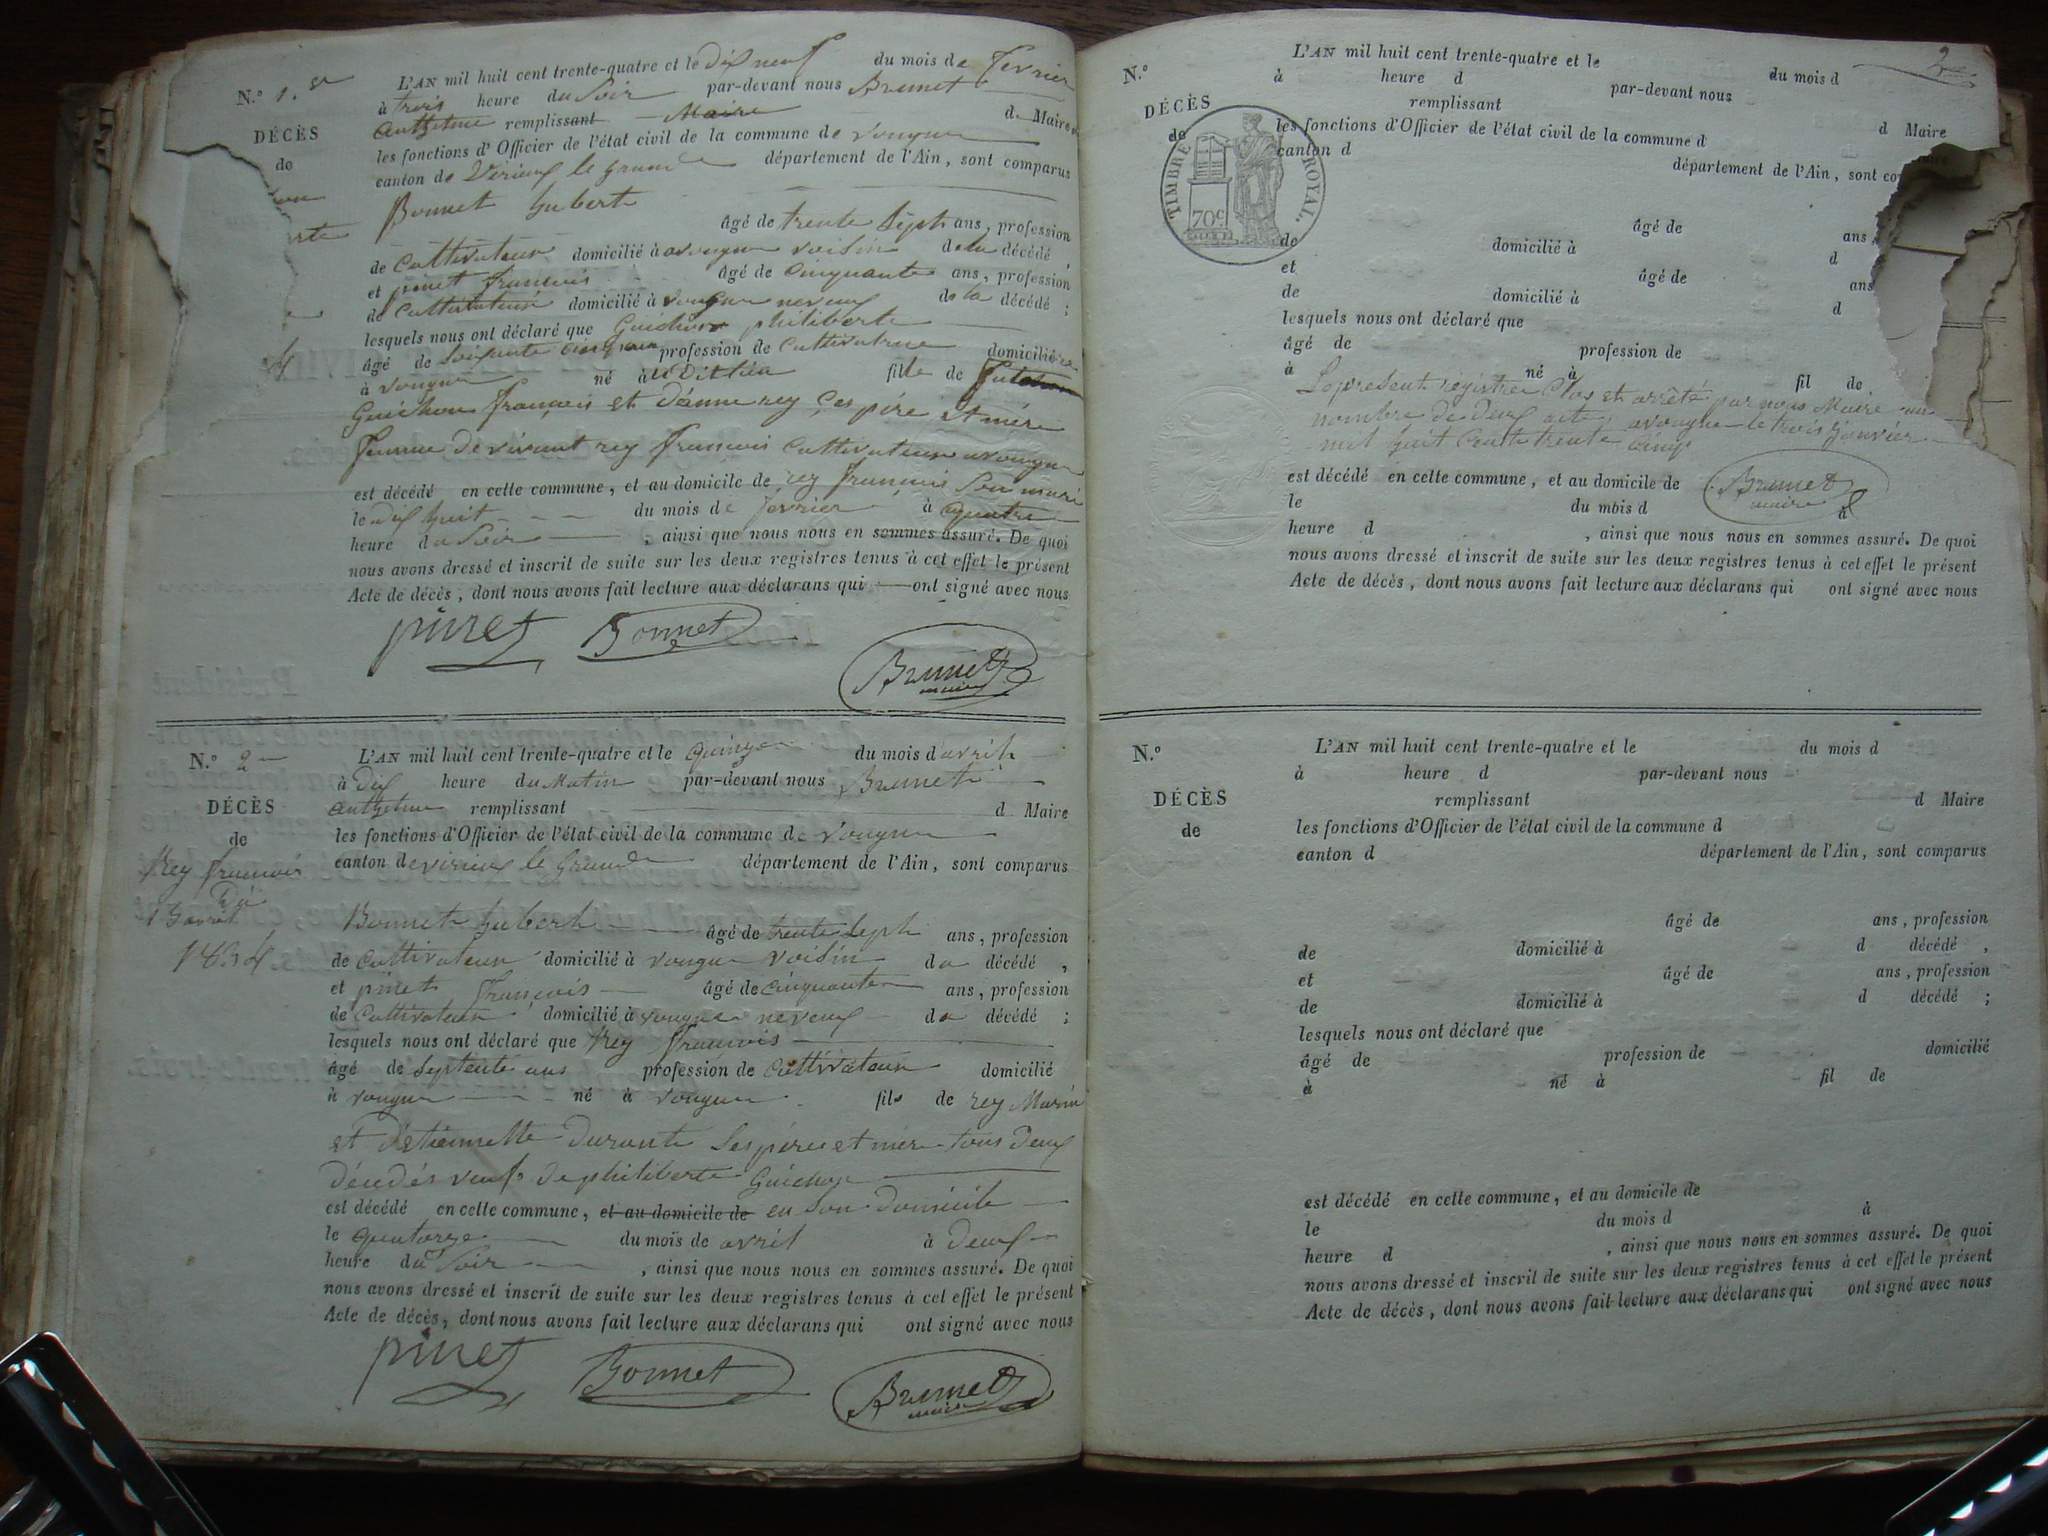 N.º 1.er
DÉCÈS
de
L'AN mil huit cent trente-quatre et le Dix neuf du mois de fevrier
à trois heure du Soir par-devant nous Brunet
anthelme remplissant Maire d. Maire
les fonctions d'Officier de l'état civil de la commune de vongne
canton de Virieux le grand département de l'Ain, sont comparus
Bonnet hubert
âgé de trente Sept ans, profession
de Cultivateur domicilié à avongne voisin de la décédé,
et pinet francois âgé de Cinquante ans, profession
de Cultivateur domicilié à vongne neveux de la décédé ;
lesquels nous ont déclaré que Guichon philiberte
âgé de Soixante Cinq profession de Cultivatrice domicilié
à vongne né à fille de
Guichon françois et d'anne rey Ses père et mère
femme de vivant rey francois Cultivateur a vongne
est décédé en cette commune, et au domicile de rey francois Son mari
le dix huit du mois de fevrier à quatre
heure du Soir , ainsi que nous nous en sommes assuré. De quoi
nous avons dressé et inscrit de suite sur les deux registres tenus à cet effet le présent
Acte de décès, dont nous avons fait lecture aux déclarans qui ont signé avec nous
pinet Bonnet
Brunet
maire
N.º 2
DÉCÈS
de
Rey francois
1834
L'AN mil huit cent trente-quatre et le quinze du mois d'avril
à Dix heure du Matin par-devant nous Brunet
anthelme remplissant d Maire
les fonctions d'Officier de l'état civil de la commune de vongne
canton de virieux le Grand département de l'Ain, sont comparus
Bonnet hubert âgé de trente Sept ans, profession
de Cultivateur domicilié à vongne voisin du décédé,
et pinet françois âgé de Cinquante ans, profession
de Cultivateur domicilié à vongne neveux du décédé ;
lesquels nous ont déclaré que Rey francois
âgé de Septente ans profession de Cultivateur domicilié
à vongne né à vongne fils de rey Marin
et d'etiennette Durante Ses père et mere tous Deux
décédés veuf de philiberte Guichon
est décédé en cette commune, et au domicile de en Son Domicile
le quatorze du mois de avril à Deux
heure du Soir , ainsi que nous nous en sommes assuré. De quoi
nous avons dressé et inscrit de suite sur les deux registres tenus à cet effet le présent
Acte de décès, dont nous avons fait lecture aux déclarans qui ont signé avec nous
pinet Bonnet Brunet
maire
2
N.º
DÉCÈS
de
TIMBRE ROYAL.
70c
L'AN mil huit cent trente-quatre et le du mois d
à heure d par-devant nous
remplissant d Maire
les fonctions d'Officier de l'état civil de la commune d
canton d département de l'Ain, sont
âgé de ans,
de domicilié à d
et âgé de ans
de domicilié à d
lesquels nous ont déclaré que
âgé de profession de
à né à fil de
Le présent régistre Clos et arrêté par nous Maire au
nombre de deux actes a vongne le trois janvier
mil huit Cent trente Cinq
est décédé en cette commune, et au domicile de
Brunet
maire
le du mois d à
heure d , ainsi que nous nous en sommes assuré. De quoi
nous avons dressé et inscrit de suite sur les deux registres tenus à cet effet le présent
Acte de décès, dont nous avons fait lecture aux déclarans qui ont signé avec nous
N.º
DÉCÈS
de
L'AN mil huit cent trente-quatre et le du mois d
à heure d par-devant nous
remplissant d Maire
les fonctions d'Officier de l'état civil de la commune d
canton d département de l'Ain, sont comparus
âgé de ans, profession
de domicilié à d décédé,
et âgé de ans, profession
de domicilié à d décédé ;
lesquels nous ont déclaré que
âgé de profession de domicilié
à né à fil de
est décédé en cette commune, et au domicile de
le du mois d à
heure d , ainsi que nous nous en sommes assuré. De quoi
nous avons dressé et inscrit de suite sur les deux registres tenus à cet effet le présent
Acte de décès, dont nous avons fait lecture aux déclarans qui ont signé avec nous